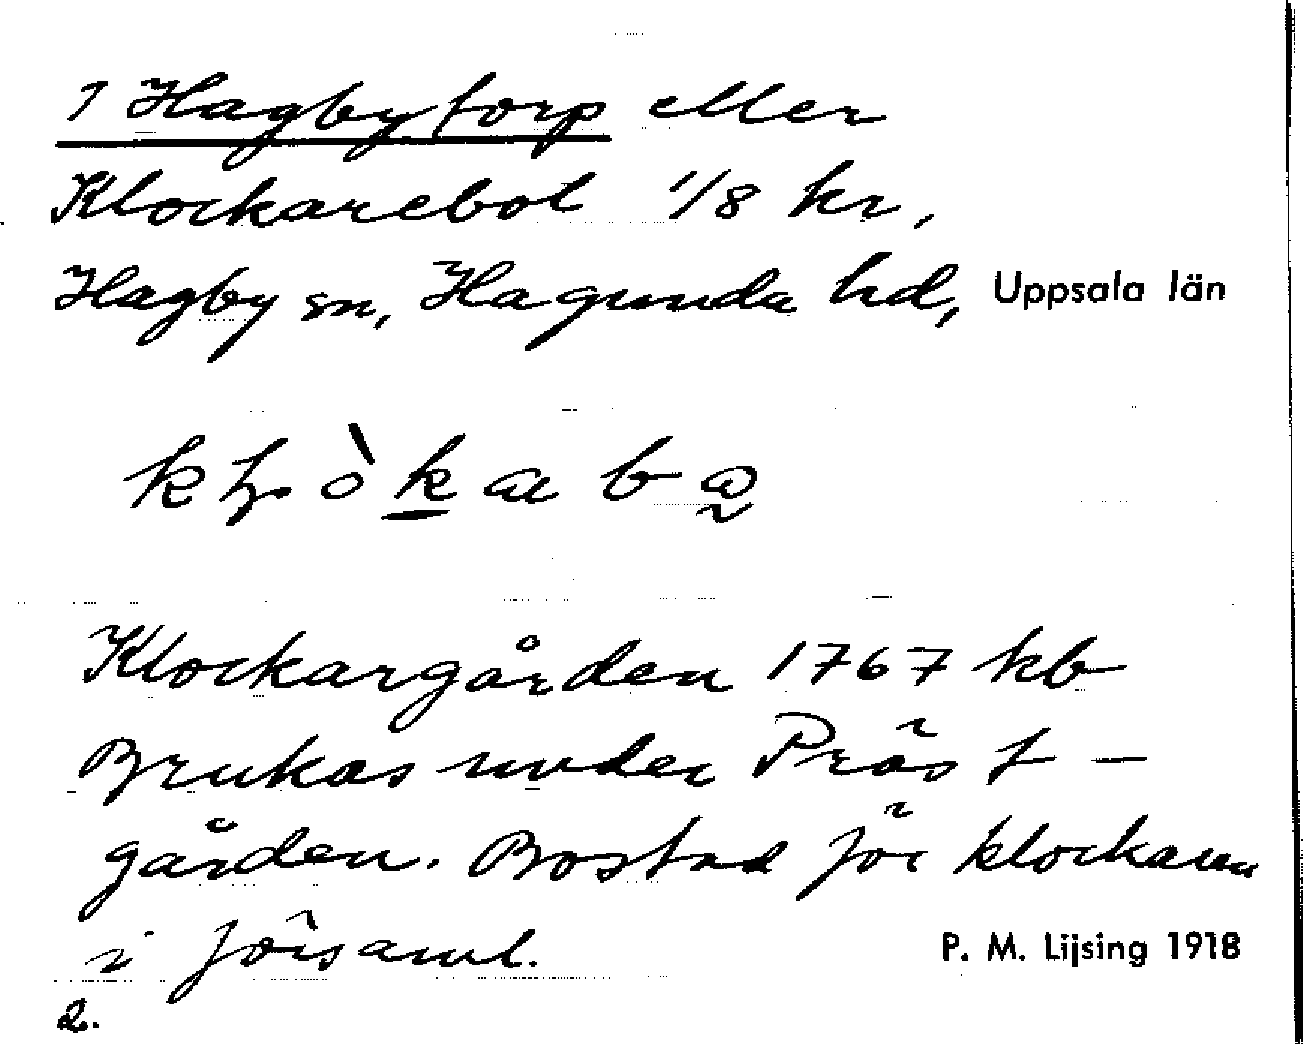 1 Hagbytorp eller
Klockarebol 1/8 kr,
Hagby sn, Hagunda hd, Uppsala län
Klockargården 1767 kb
Brukas under Präst-
gården. Bostad för klockaren
i förs­aml.
P. M. Lijsing 1918
2.